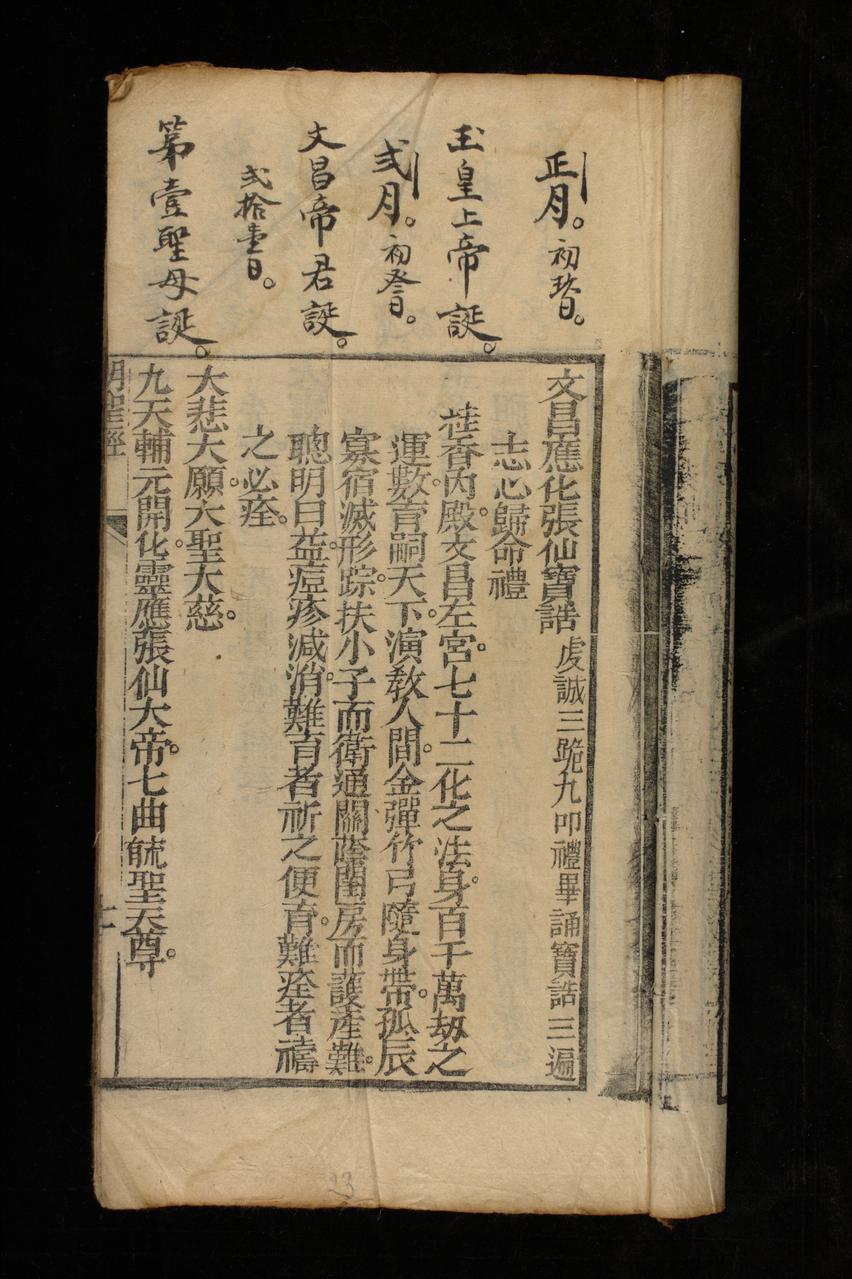 正月。初玖日。
玉皇上帝誕。
弍月。初叁日。
文昌帝君誕。
弍拾壹日。
第壹聖母誕。
文昌應化張仙寶誥 虔誠三跪九叩禮畢誦寶誥三遍
志心歸命禮
桂香內殿。文昌左宮。七十二化之法身。百千萬劫之
運數。育嗣天下。演教人間。金彈竹弓隨身帶。孤辰
寡宿滅形踪。扶小子而衛通關。蔭閨房而護產難。
聰明日益。痘疹減消。難育者祈之便育。難痊者禱
之必痊。
大悲大願。大聖大慈。
九天輔元開化。靈應張仙大帝。七曲毓聖天尊。
明聖經